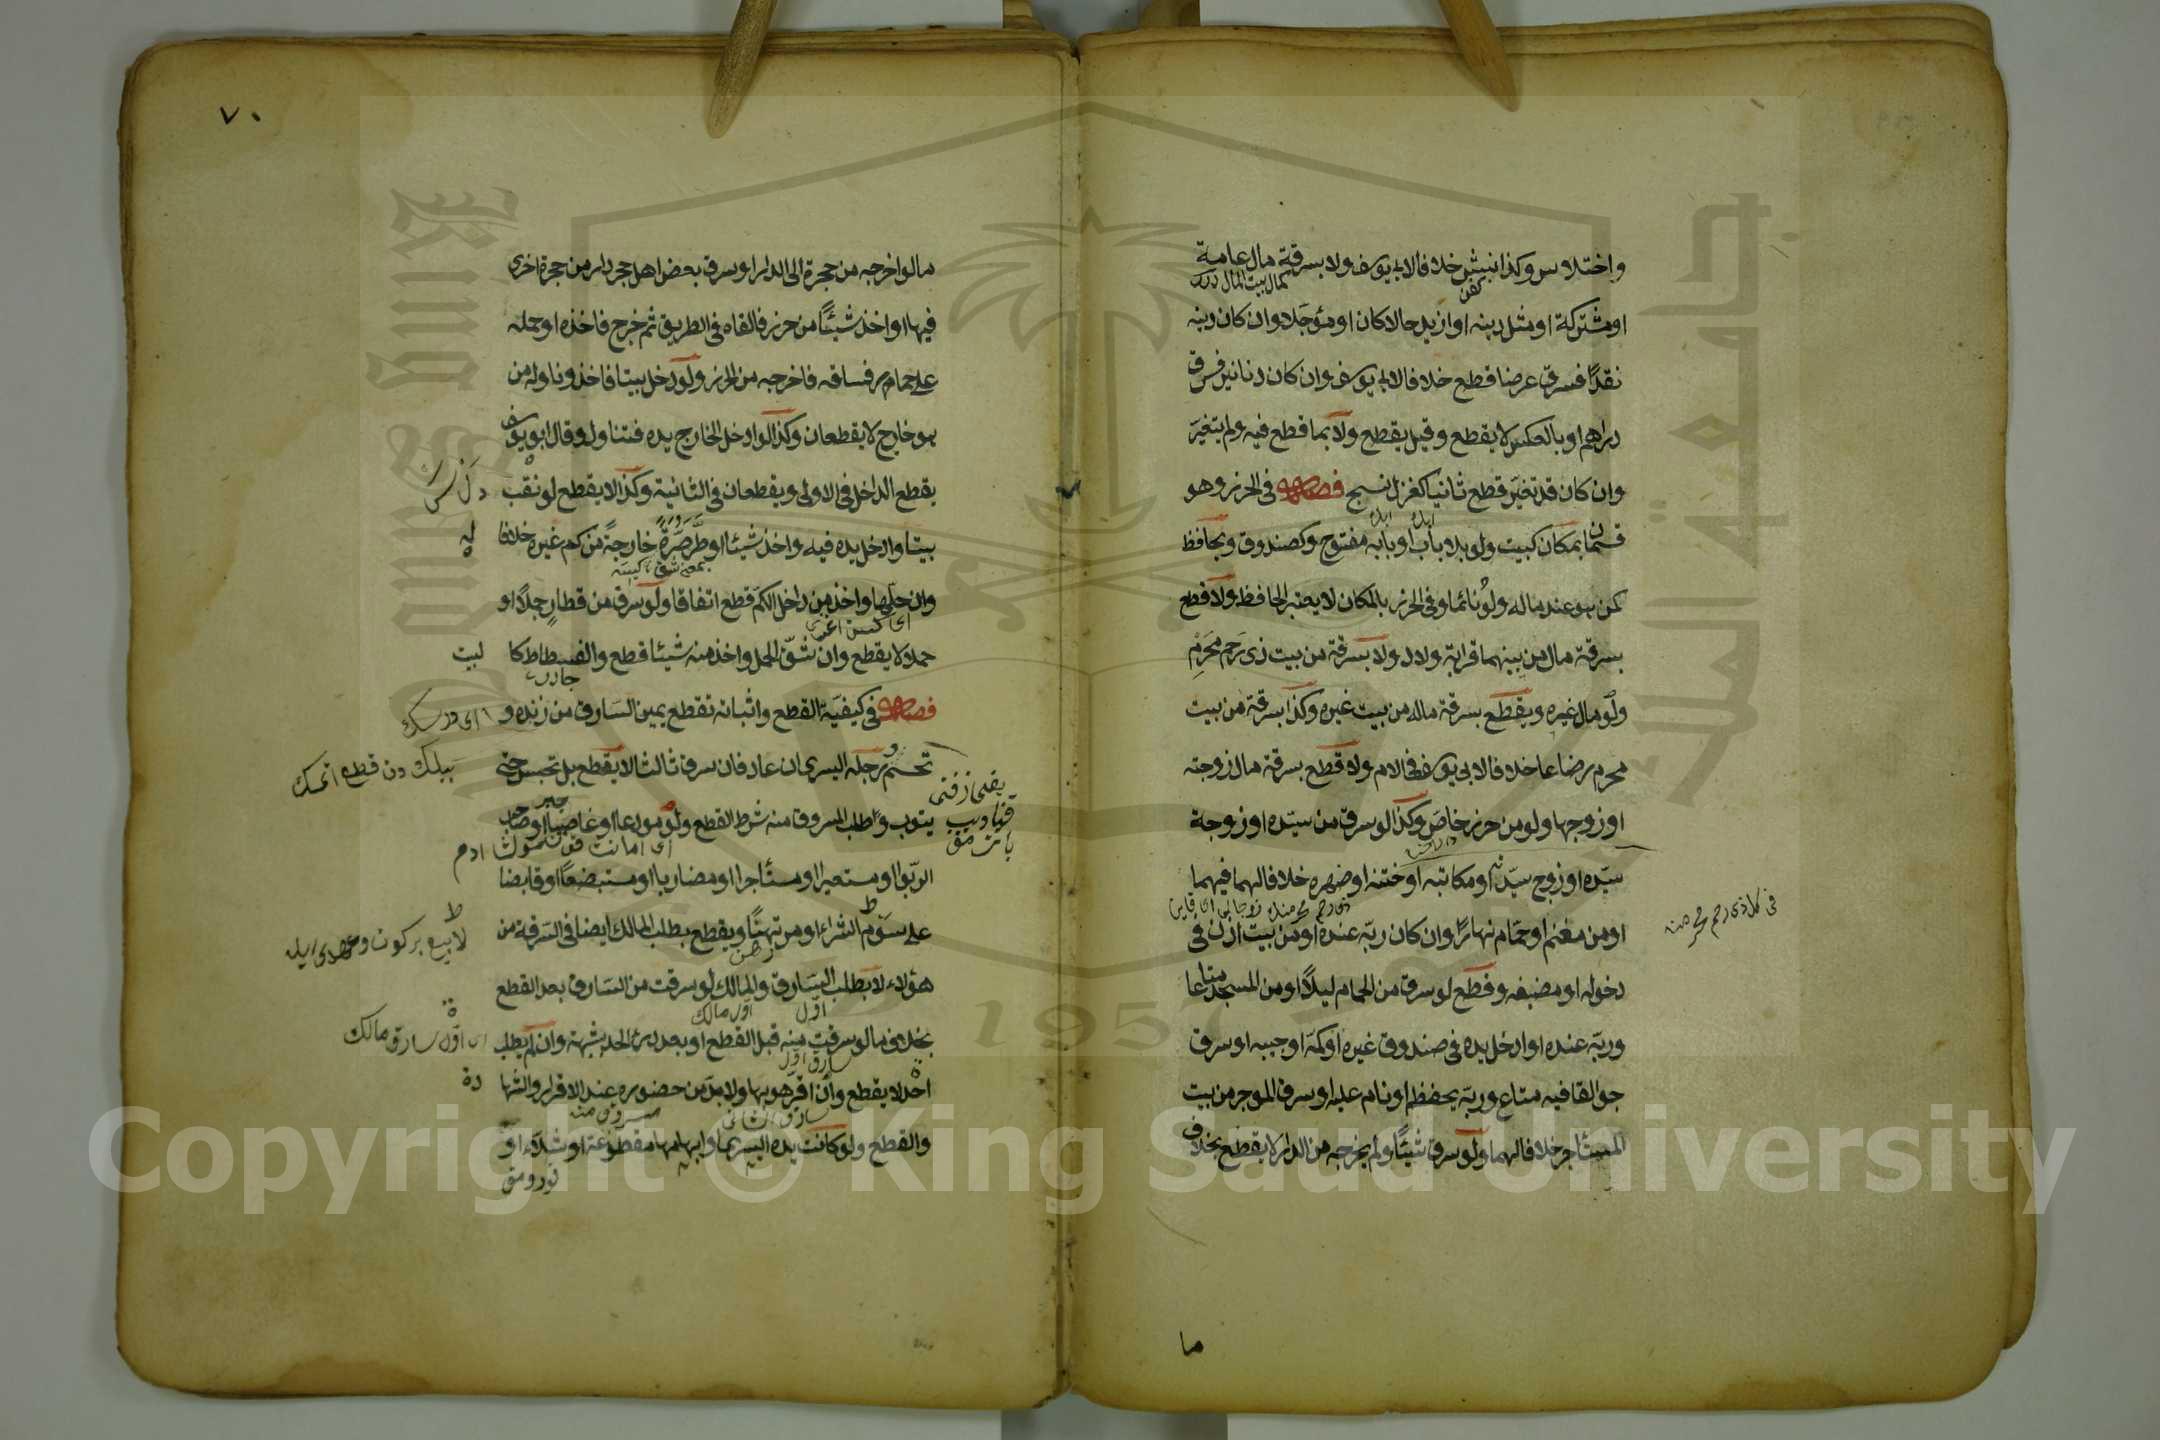 واختلاس وكذا نبش خلافا لابي يوسف ولا بسرقة مال عامة
كفن
كمال بيت المال درر
او مشتركة او مثل دينه او ازيد حالا كان او مؤجلا وان كان دينه
نقدًا فسرق عرضا قطع خلافا لابي يوسف وان كان دنانير فسرق
دراهم او بالعكس لا يقطع وقيل يقطع ولا بما قطع فيه ولم يتغيّر
وان كان قد تغيّر قطع ثانيا كغزل نسج فصل في الحرز وهو
قسمان بمكان كبيت ولو بلا باب او بابه مفتوح وكصندوق وبحافظ
كمن هو عند ماله ولو نائما وفي الحرز بالمكان لا يعتبر الحافظ ولا قطع
بسرقة مال من بينهما قرابة ولاد ولا بسرقة من بيت ذى رَحِم محرمٍ
ولو مال غيره ويقطع بسرقة ماله من بيت غيره وكذا بسرقة من بيت
محرم رضاعا خلافا لابي يوسف في الام ولا قطع بسرقة مال زوجته
او زوجها ولو من حرز خاصّ وكذا لو سرق من سيّده او زوجة
سيّده او زوج سيّدته او مكاتبه او ختنه او صهره خلافا لهما فيهما
في كل ذى رحم محرم منه
او من مغنم او حمّام نهارًا وان كان ربّه عنده او من بيت اذن في
دخوله او مضيفه وقطع لو سرق من الحمام ليلاً او من المسجد متاعا
وربّه عنده او ادخل يده في صندوق غيره او كمّه او جيبه او سرق
جوالقا فيه متاع وربّه يحفظه او نام عليه او سرق المؤجر من بيت
المستاجر خلافا لهما ولو سرق شيئًا ولم يخرجه من الدار لا يقطع بخلاف
ما
٧٠
ما لو اخرجه من حجرة الى الدار او سرق بعض اهل حجر دار من حجرة اخرى
فيها او اخذ شيئًا من حرز فالقاه في الطريق ثم خرج فاخذه او حمله
على حمار فساقه فاخرجه من الحرز ولو دخل بيتا فاخذ وناوله من
هو خارج لا يقطعان وكذا لو ادخل الخارج يده فتناول وقال ابو يوسف
يقطع الداخل في الاولى ويقطعان في الثانية وكذا لا يقطع لو نقب
بيتا وادخل يده فيه واخذ شيئا او طرّ صرّةً خارجةً من كم غيره خلافا له
وان حلّها واخذ من داخل الكم قطع اتفاقا ولو سرق من قطارٍ جملاً او
حملا لا يقطع وان شقّ الحمل واخذ منه شيئا قطع والفسطاط كا لبيت
فصل في كيفيّة القطع واثباته تقطع يمين السّارق من زنده و
تحسم ورجله اليسرى ان عاد فان سرق ثالثا لا يقطع بل تحبس حتى
يتوب وطلب المسروق منه شرط القطع ولو مودعا او غاصبا او صاحب
الربوا او مستعيرا او مستأجرا او مضاربا او مستبضعًا او قابضا
على سوم الشراء او مرتهنًا ويقطع بطلب المالك ايضا في السّرقة من
هؤلاء لا بطلب السّارق والمالك لو سرقت من السّارق بعد القطع
اول
اول مالك
اى اول سارق مالك
بخلاف ما لو سرقت منه قبل القطع او بعد درئ الحد بشبهة وان لم يطلب
سارق اول
احد لا يقطع وان اقرّ هو بها ولا بد من حضوره عند الاقرار والشها دة
سارق الثانى
مسروق منه
والقطع ولو كانت يده اليسرى او ابهامها مقطوعة او شلّاء او